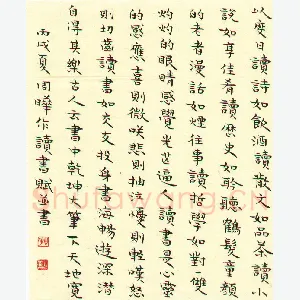 以度日讀詩如飲酒讀散文如品茶讀小
說如享佳肴讀歷史如聆聽鶴髮童顏
的老者漫話如煙往事讀哲學如對一雙
灼灼的眼睛感覺光芒逼人讀書是心靈
的感應喜則微笑悲則抽泣憂則輕嘆怒
則切齒讀書如交友投身書海暢遊深潛
自得其樂古人云書中乾坤大筆下天地寬
丙戌夏周曄作讀書賦並書
Shufawang.cn